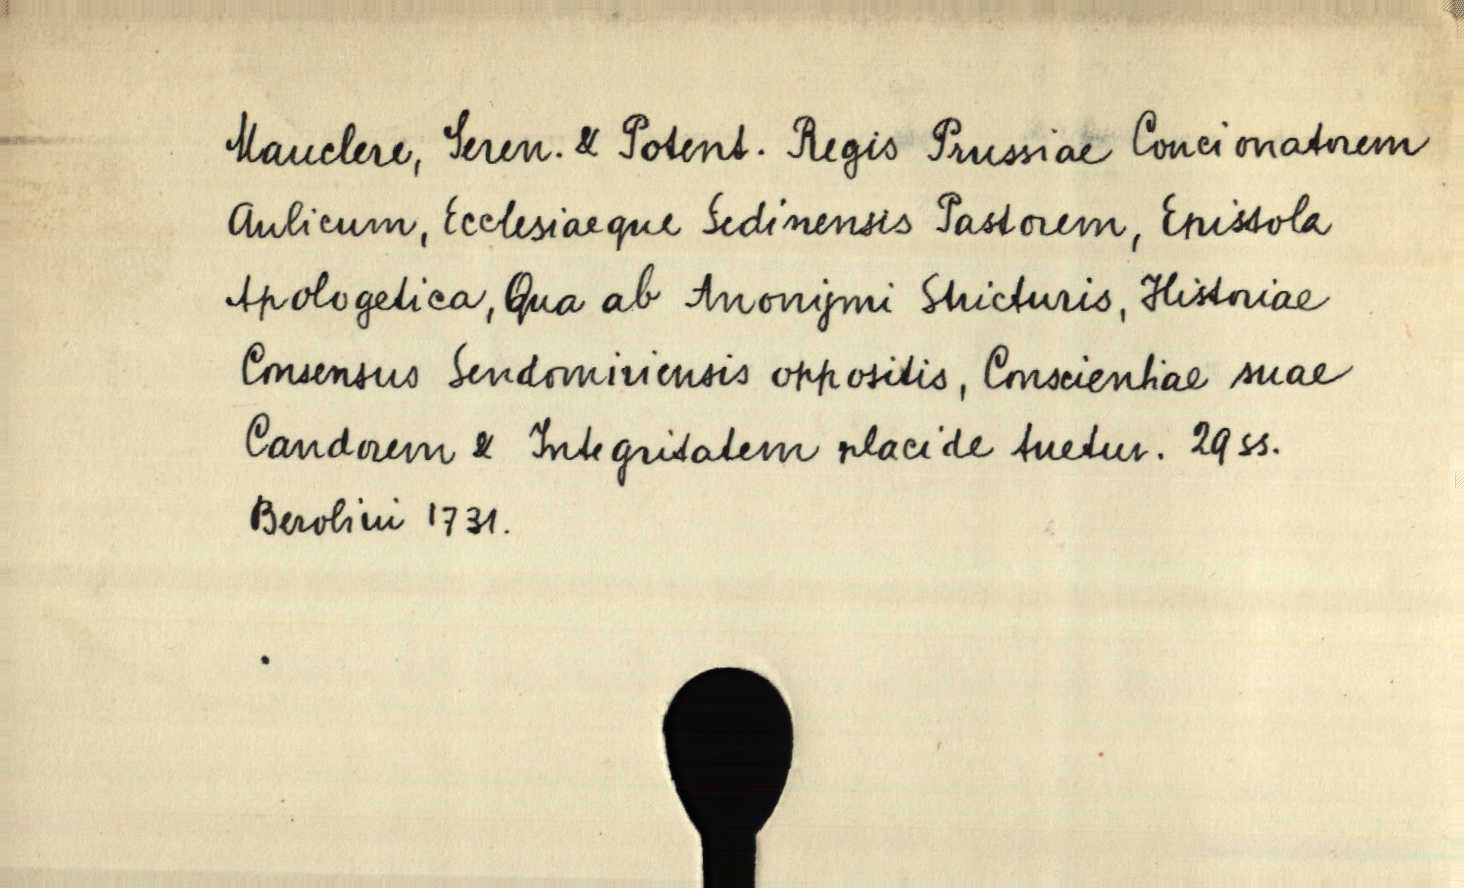 Mauclere, Seren. & Potent. Regis Prussiae Concionatorem
Aulicum, Ecclesiaeque Sedinensis Pastorem, Epistola
Apologetica, Qua ab Anonijmi Stricturis, Historiae
Consensus Sendomiriensis oppositis, Conscientiae suae
Candorem & Integritatem placide tuetur. 29 ss.
Berolini 1731.